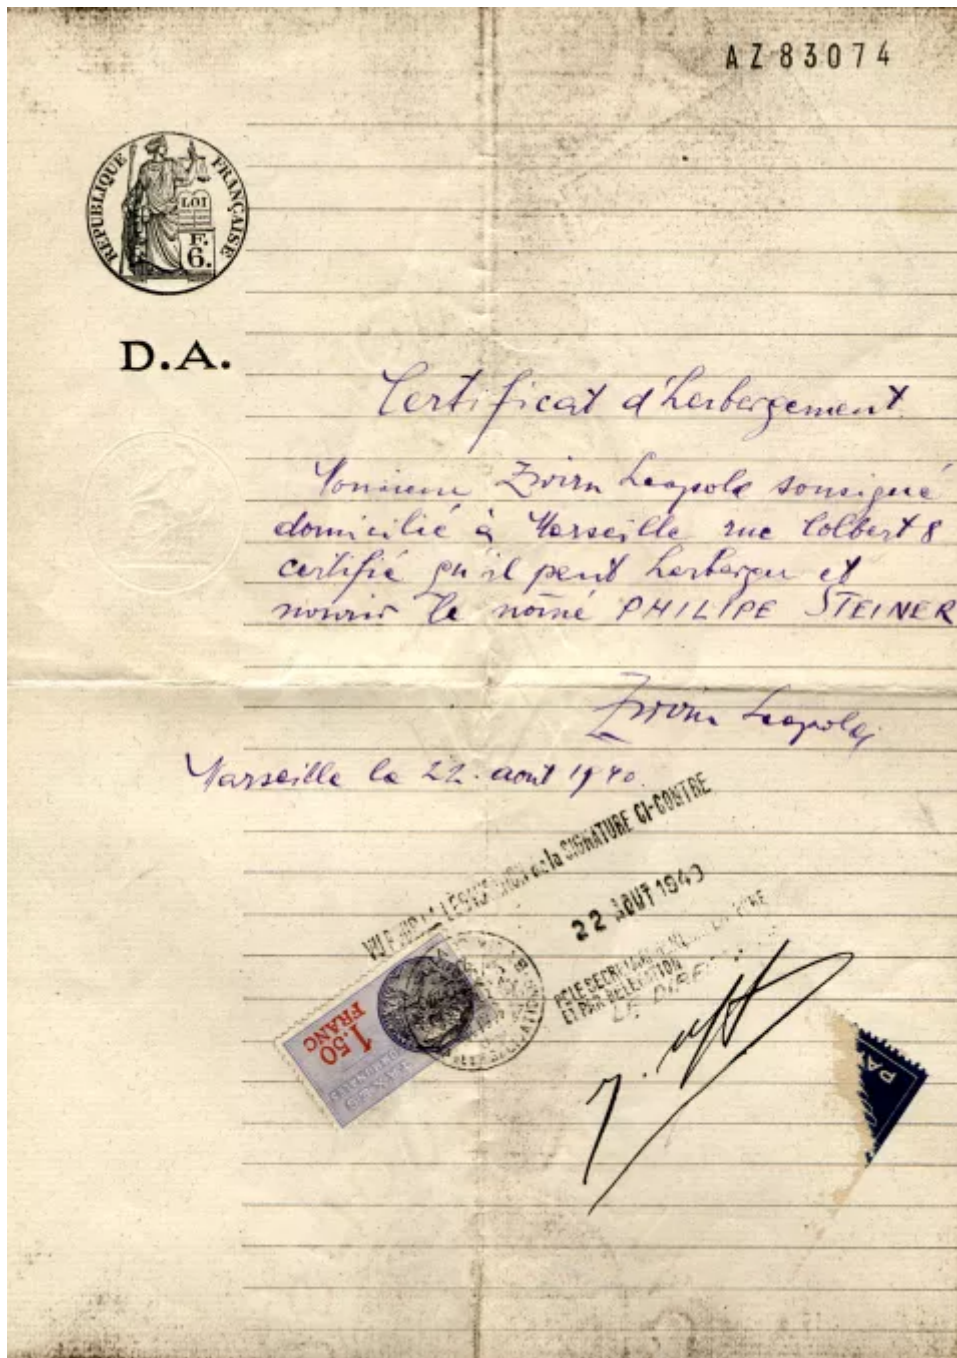 AZ83074
RÉPUBLIQUE FRANÇAISE
LOI
F.
6.
D.A.
Certificat d'herbergement
Monsieur Zwirn Leopold sousigné
domicilié à Marseille rue Colbert 8
certifié qu'il peut herberger et
nourir le nomé PHILIPE STEINER
Zwirn Leopold
Marseille le 22. aout 1940.
VU de la SIGNATURE CI-CONTRE
22 AOUT 1940
P. LE SECRÉTAIRE
ET PAR DÉLÉGATION
LE
1.50
FRANC
PA